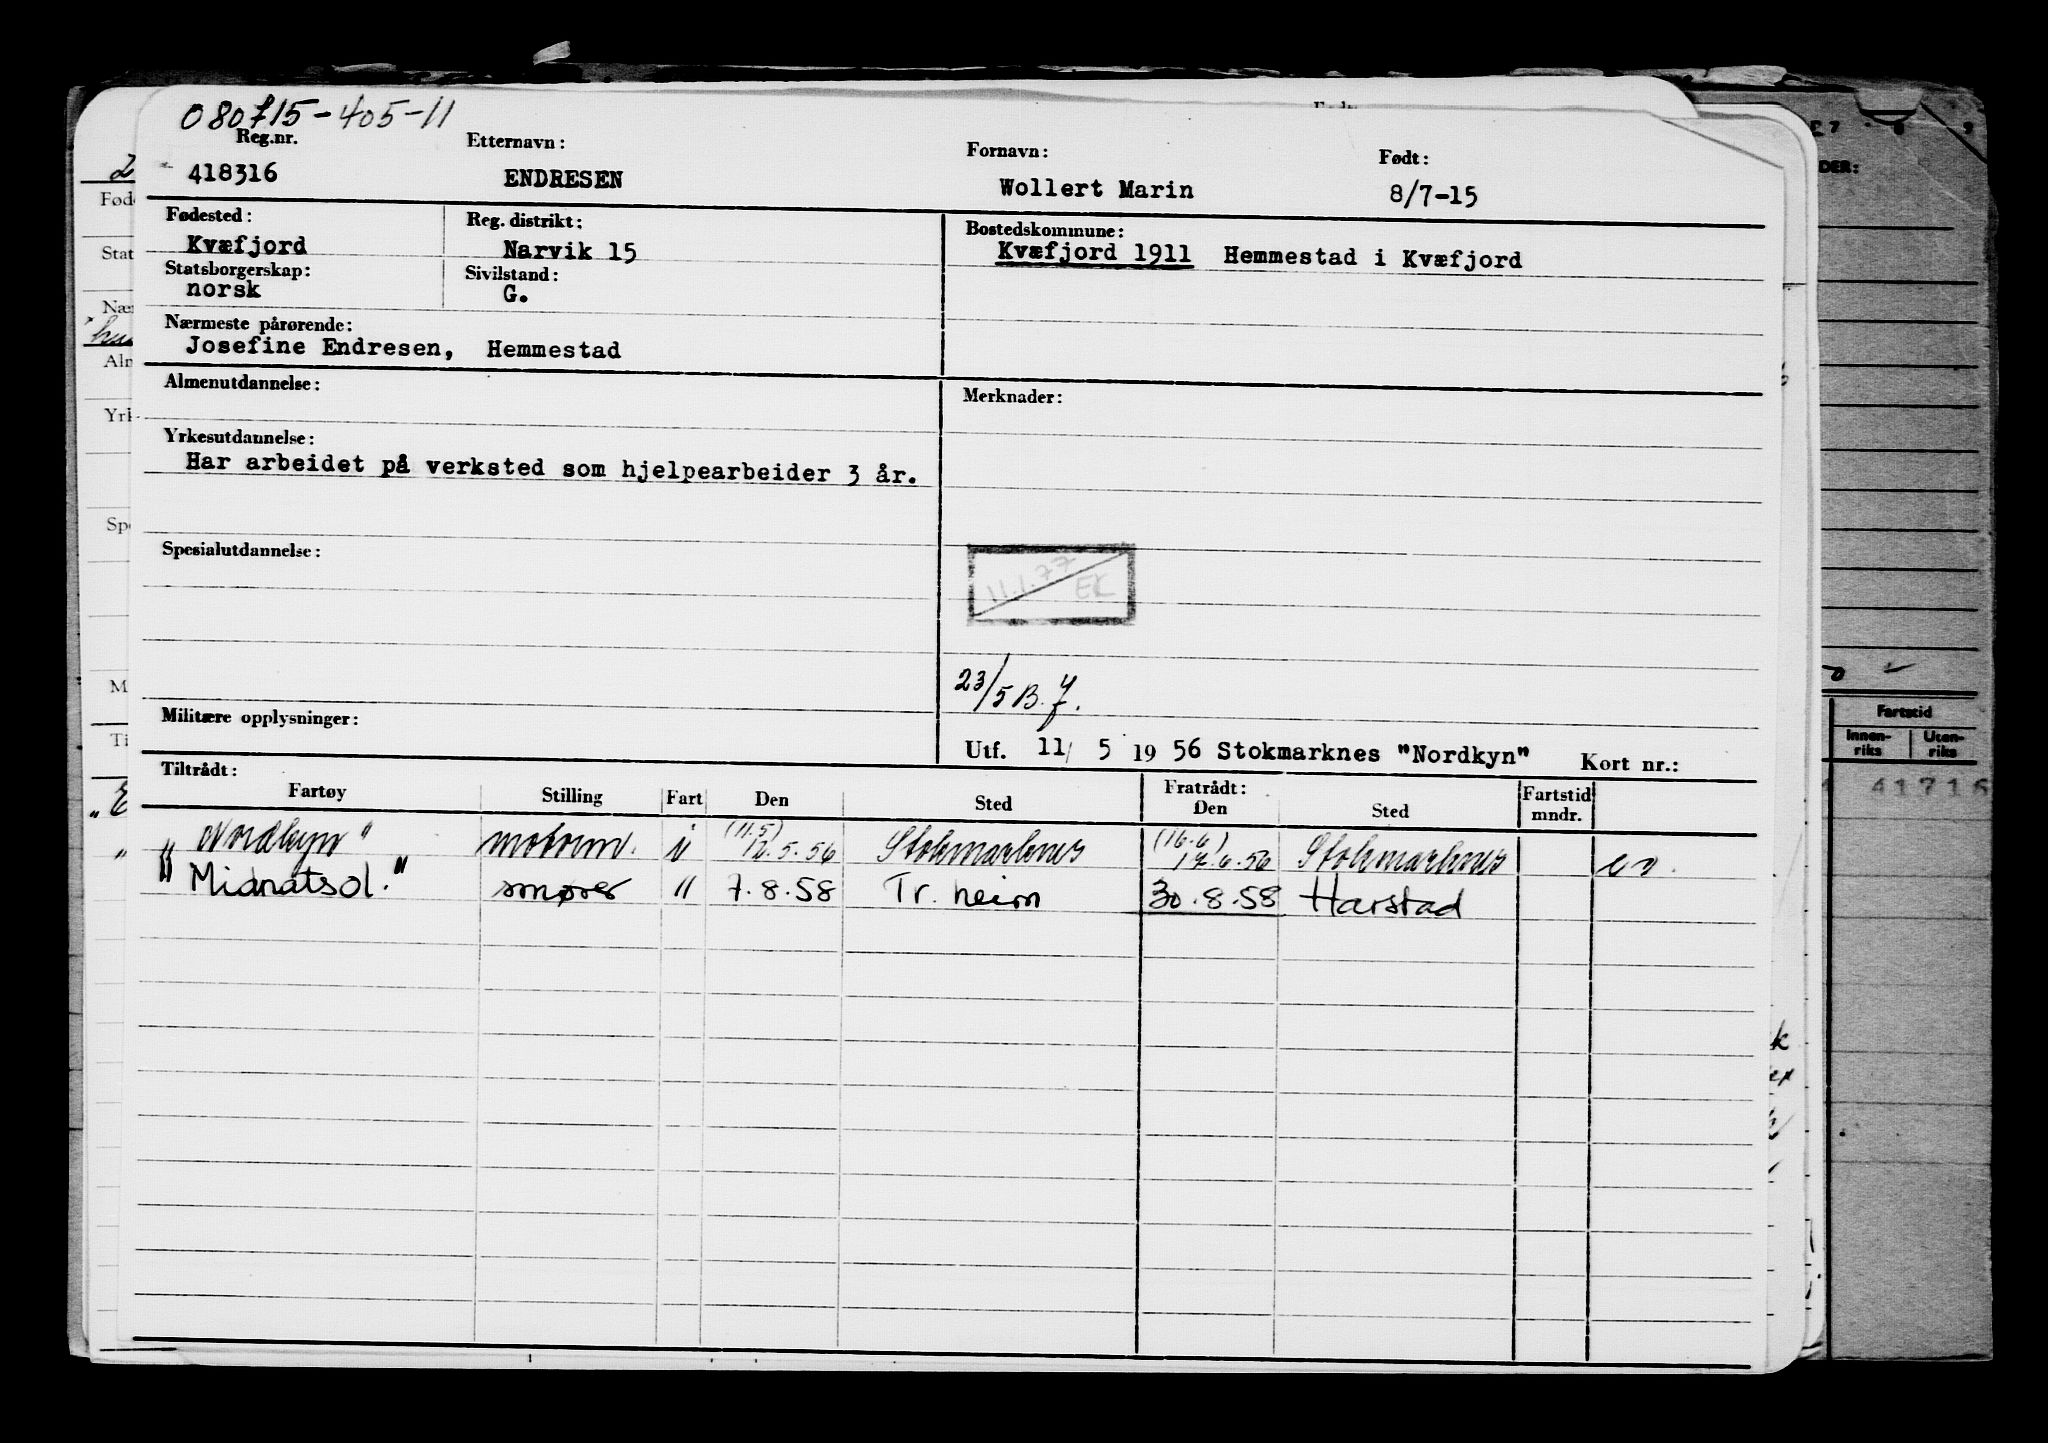 080715-405-11
Reg.nr. Etternavn: Fornavn: Født:
418316 ENDRESEN Wollert Marin 8/7-15
Fødested: Reg. distrikt: Bostedskommune:
Kvæfjord Narvik 15 Kvæfjord 1911 Hemmestad i Kvæfjord
Statsborgerskap: Sivilstand:
norsk G.
Nærmeste pårørende:
Josefine Endresen, Hemmestad
Almenutdannelse: Merknader:
Yrkesutdannelse:
Har arbeidet på verksted som hjelpearbeider 3 år.
Spesialutdannelse:
11.1.77 EK
23/5 B.J.
Militære opplysninger:
Utf. 11/ 5 19 56 Stokmarknes "Nordkyn" Kort nr.:
Tiltrådt: Fratrådt:
Fartøy Stilling Fart Den Sted Den Sted Fartstid mndr.
"Nordkyn" motorm. i (11.5) 12.5.56 Stokmarknes (16.6) 12.6.56 Stokmarknes
"Midnatsol." smører " 7.8.58 Tr. heim 30.8.58 Harstad
DER:
Fartstid
Innen-riks Uten-riks
41716